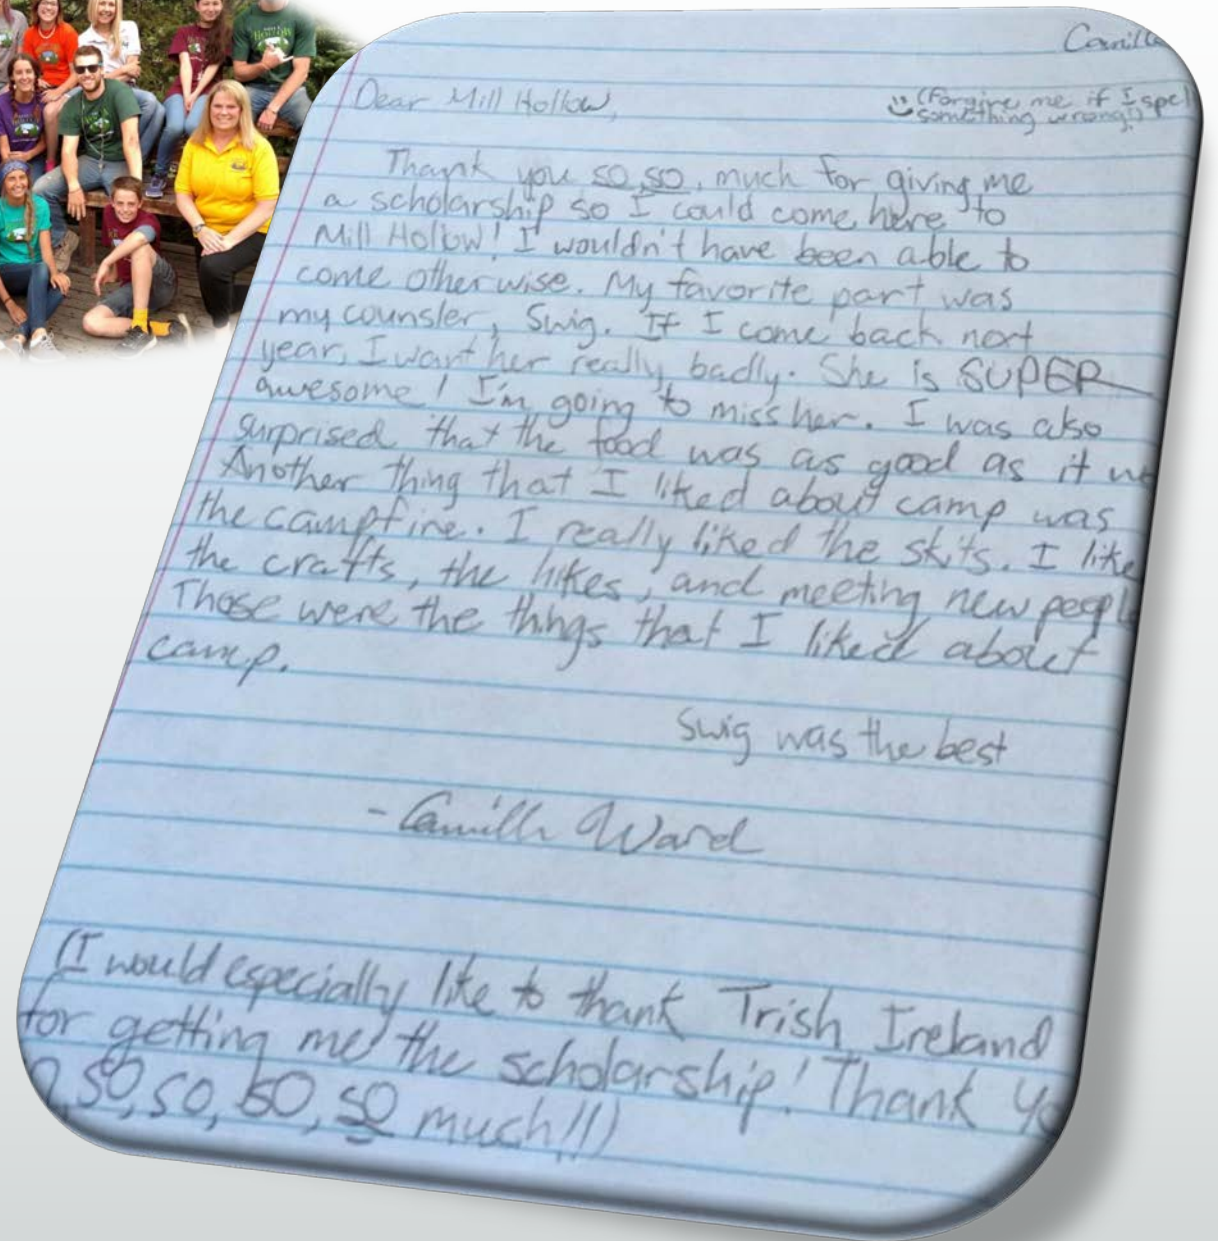 Camille
Dear Mill Hollow,
(Forgive me if I spel
something wrong!)
Thank you so, so, much for giving me
a scholarship so I could come here to
Mill Hollow! I wouldn't have been able to
come otherwise. My favorite part was
my counsler, Swig. If I come back next
year, I want her really badly. She is SUPER
awesome! I'm going to miss her. I was also
surprised that the food was as good as it w
Another thing that I liked about camp was
the campfire. I really liked the skits. I like
the crafts, the hikes, and meeting new peopl
Those were the things that I liked about
camp.
Swig was the best
- Camille Ward
(I would especially like to thank Trish Ireland
for getting me the scholarship! Thank yo
so, so, so, so much!!!)